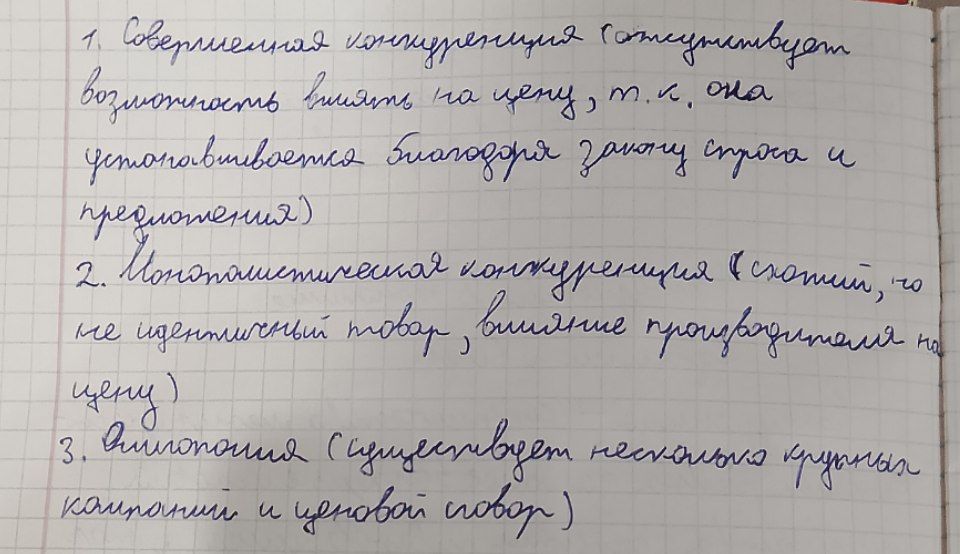 1. Совершенная конкуренция (отсутствует
возможность влиять на цену, т.к. она
устанавливается благодаря закону спроса и
предложения)
2. Монополистическая конкуренция (схожий, но
не идентичный товар, влияние производителя на
цену)
3. Олигополия (существует несколько крупных
компаний и ценовой сговор)